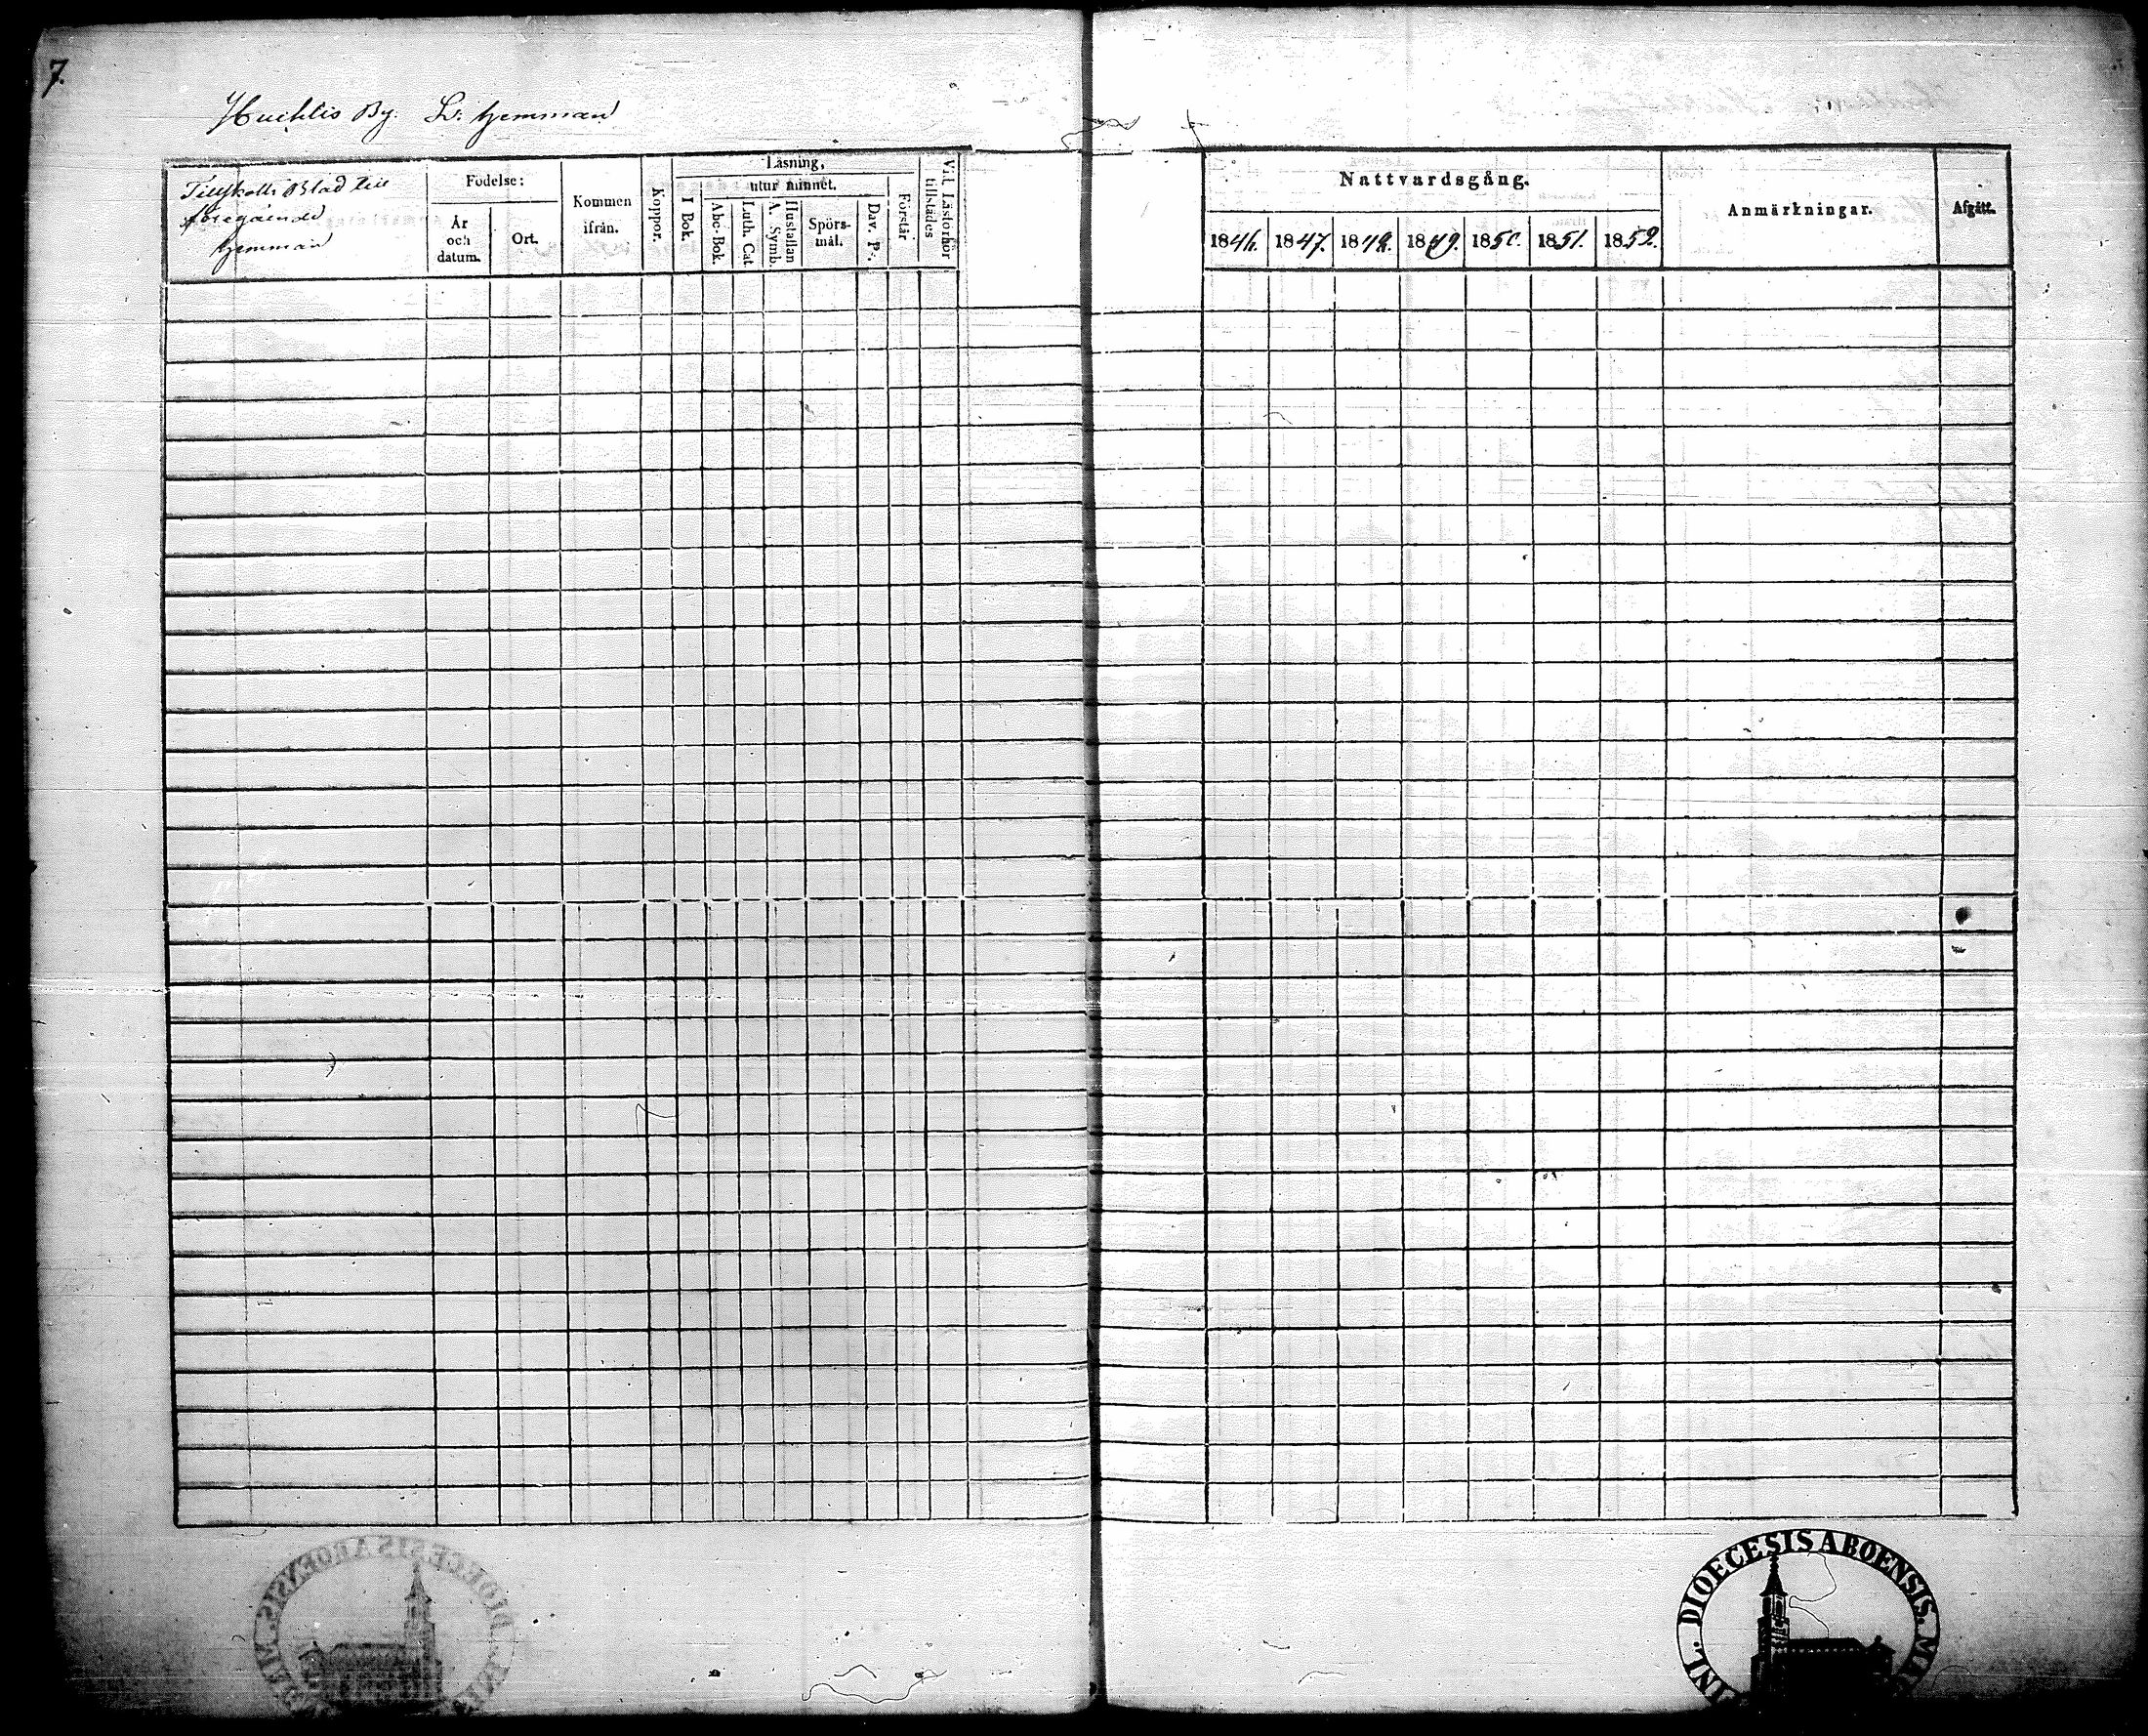 7.
Huihlis By. Lr: hemman
Tillskotts Blad till
föregående
hemman
Födelse:
År
och
datum.
Ort.
Kommen
ifrån.
Koppor.
Läsning,
utur minnet.
I Bok.
Abc-Bok.
Luth. Cat.
A. Symb.
Hustaflan
Spörs-
mål.
Dav. Ps.
Förstår
Vid Läsförhör
tillstädes
Nattvardsgång.
1846. 1847. 1848. 1849. 1850. 1851. 1852.
Anmärkningar.
Afgått.
DIOECESIS ABOENSIS.